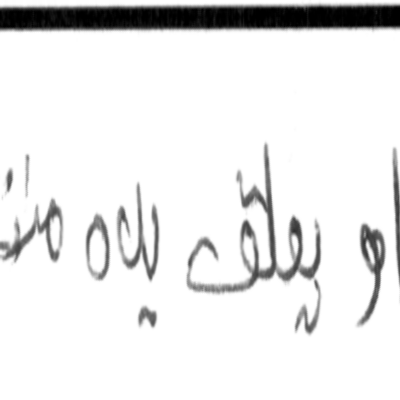 او يعلق يده